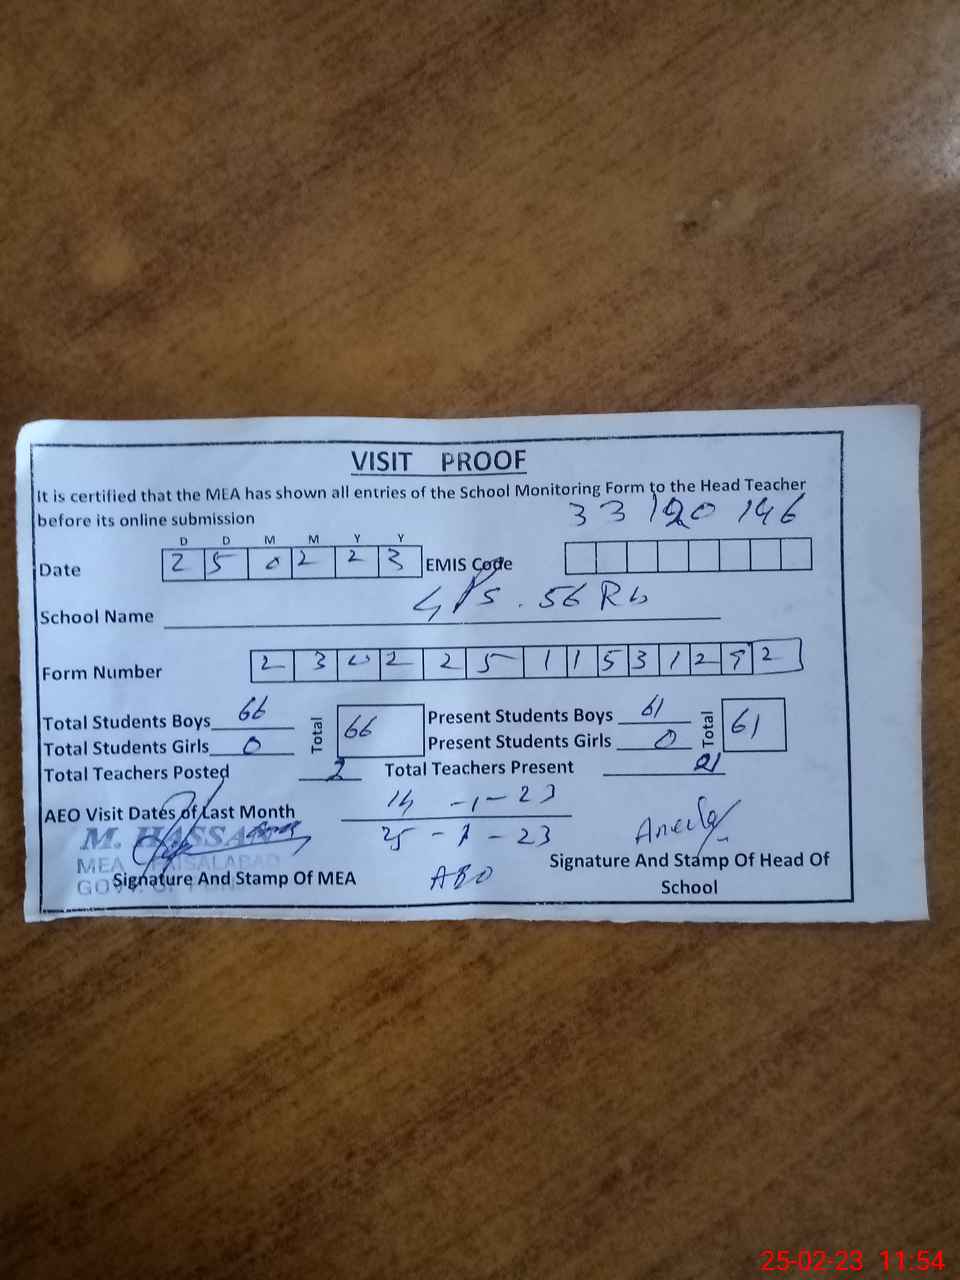 VISIT PROOF
It is certified that the MEA has shown all entries of the School Monitoring Form to the Head Teacher
before its online submission
33120146
D D M M Y Y
Date 2 5 0 2 2 3 EMIS Code
School Name GPS. 56 Rb
Form Number 2 3 0 2 2 5 1 1 5 3 1 2 9 2
Total Students Boys 66 Total 66 Present Students Boys 61 Total 61
Total Students Girls 0 Present Students Girls 0
Total Teachers Posted 2 Total Teachers Present
14 -1-23
AEO Visit Dates of Last Month
25 - 1 - 23
M. HASSAN
MEA FAISALABAD
Signature And Stamp Of MEA
Signature And Stamp Of Head Of
School
25-02-23 11:54